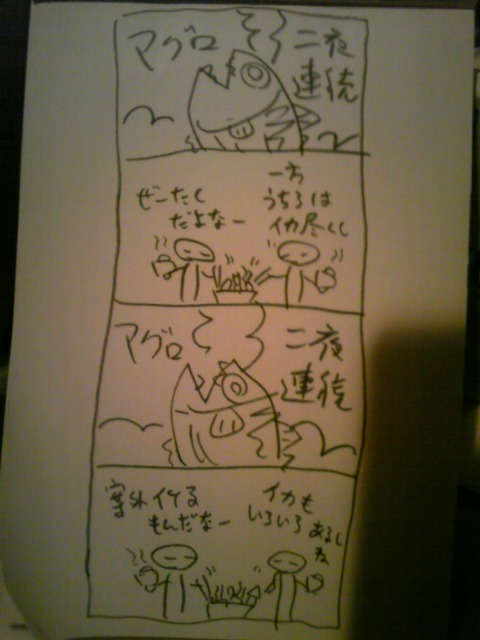 マグロ
二夜
連続
一方
うちらは
イカ尽くし
ぜーたく
だよなー
マグロ
二夜
連続
イカも
いろいろ
あるし
ね
案外イケる
もんだなー